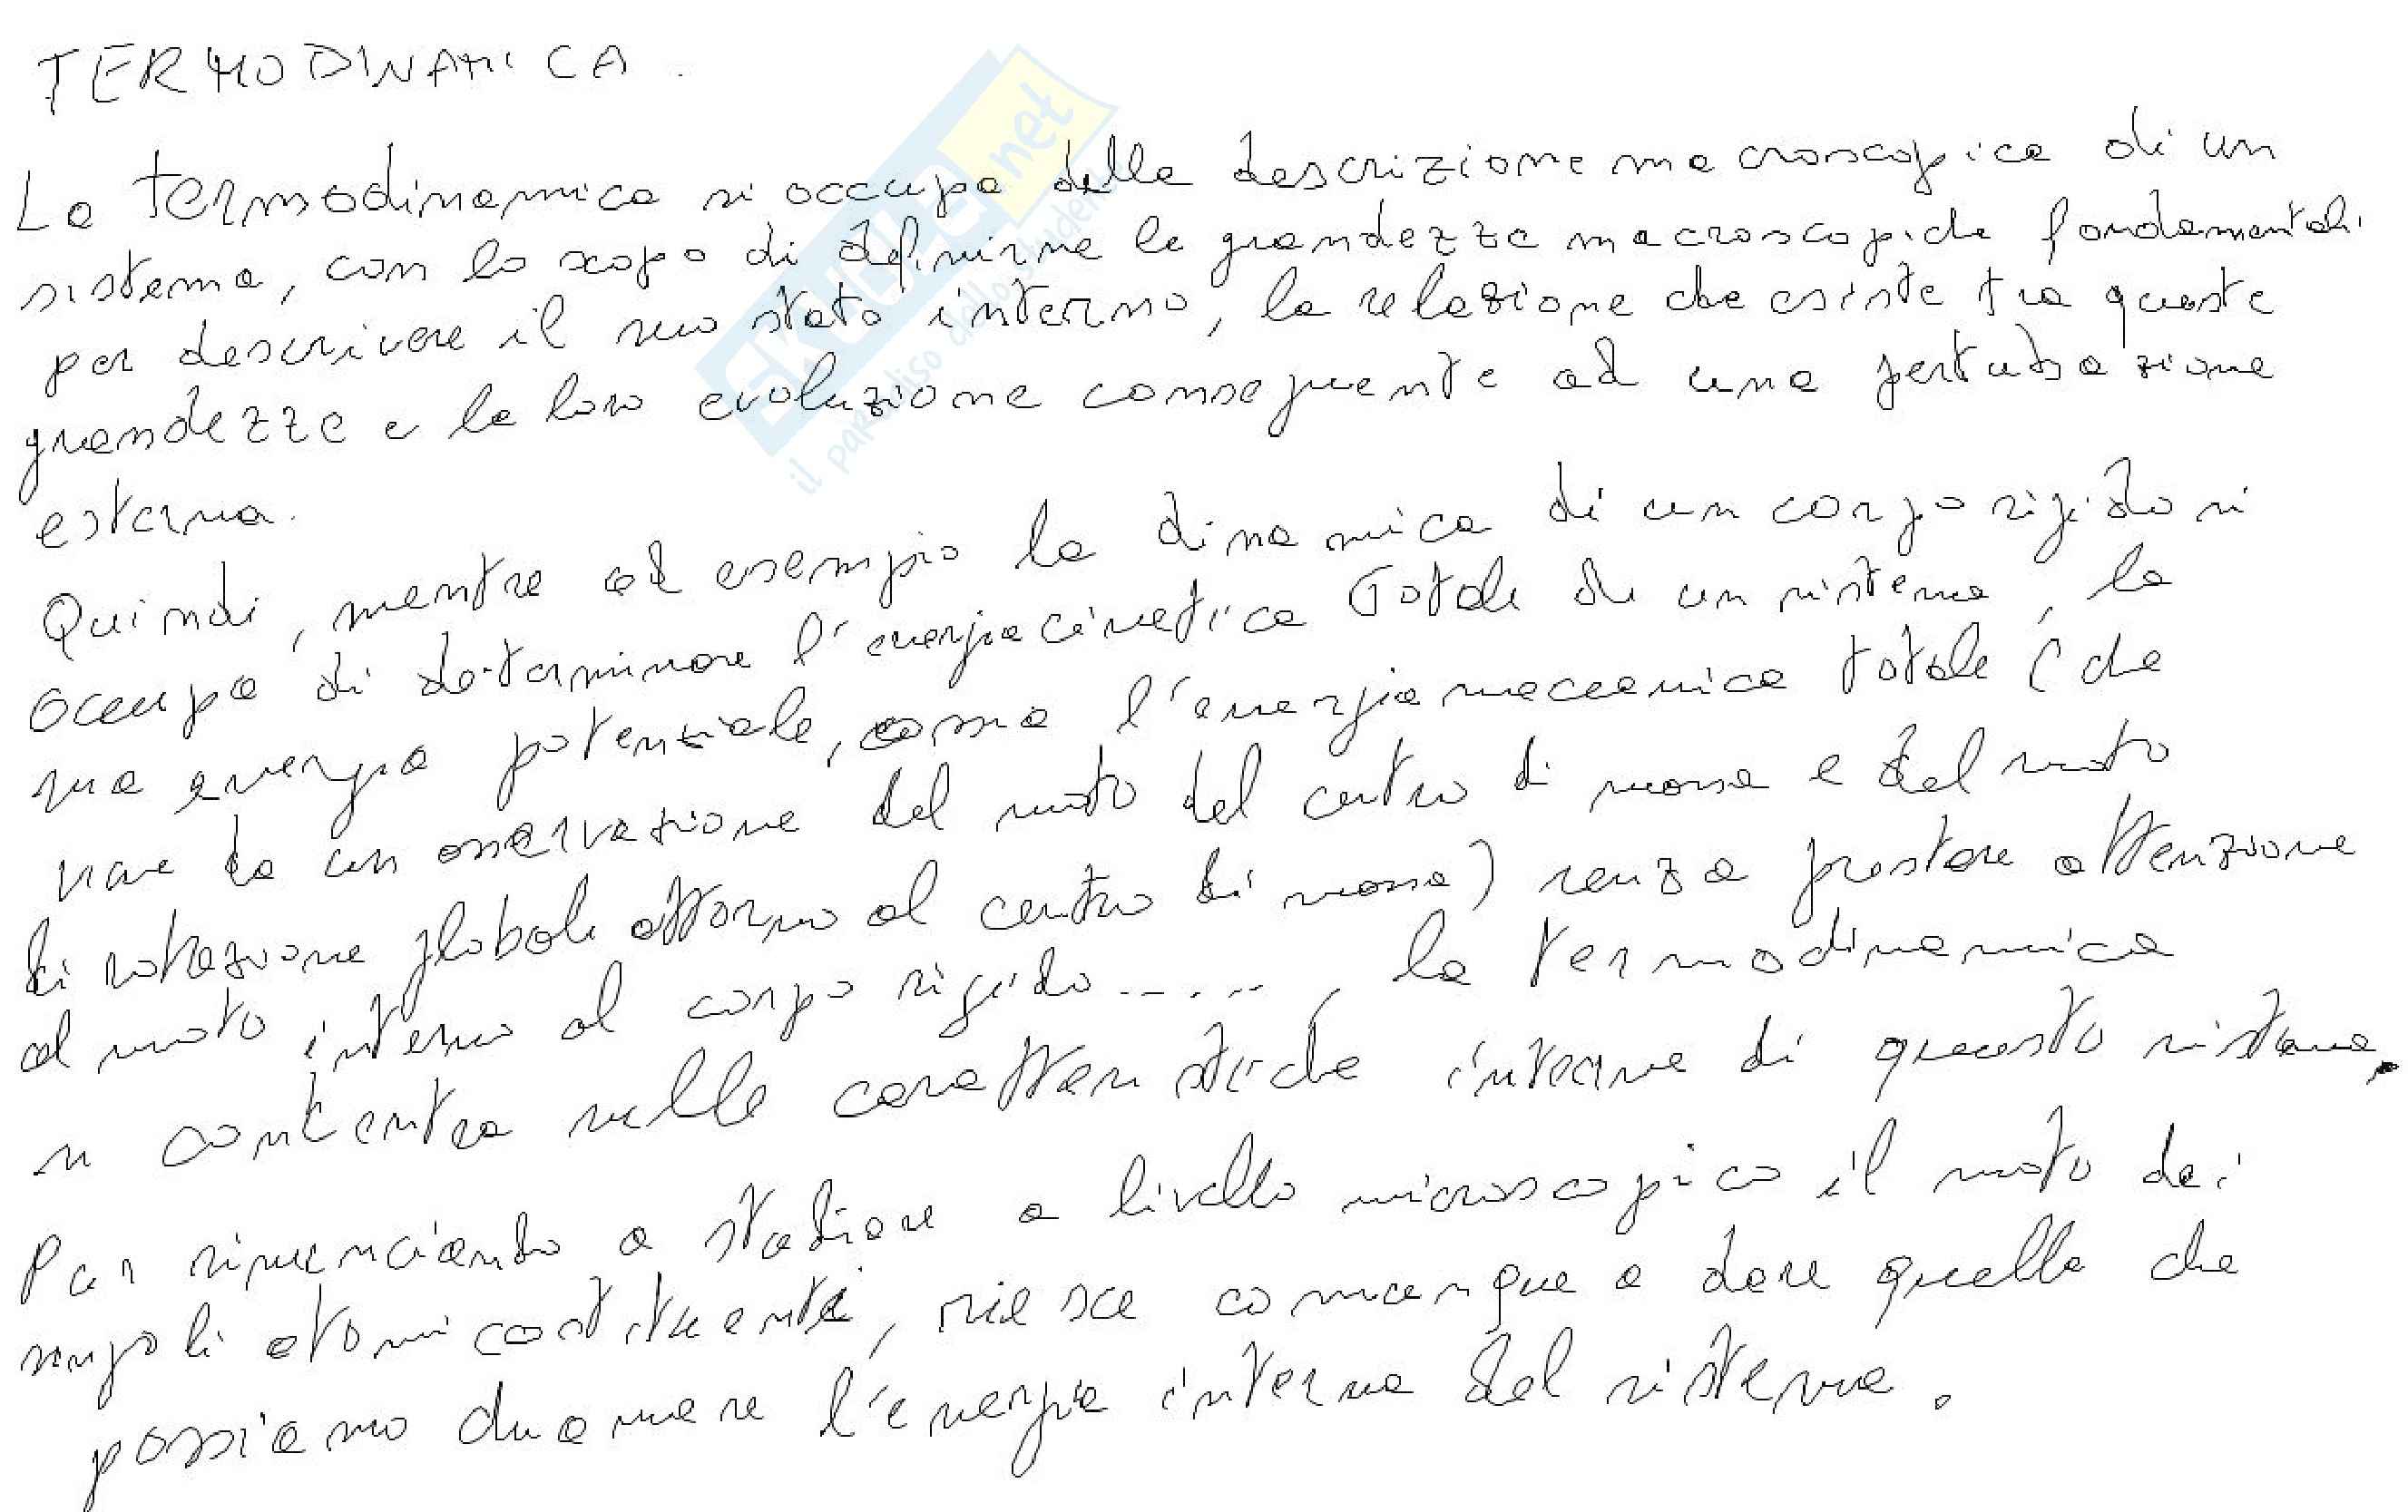 TERMODINAMICA.
La termodinamica si occupa della descrizione macroscopica di un
sistema, con lo scopo di definirne le grandezze macroscopiche fondamentali
per descrivere il suo stato interno, la relazione che esiste tra queste
grandezze e la loro evoluzione conseguente ad una pertubazione
esterna.
Quindi, mentre ad esempio la dinamica di un corpo rigido si
occupa di determinare l'energia cinetica totale di un sistema, la
sua energia potenziale, ossia l'energia meccanica totale (che
viene da un osservazione del moto del centro di massa e del moto
di rotazione globale attorno al centro di massa) senza prestare attenzione
al moto interno al corpo rigido ....., la termodinamica
si concentra sulle caratteristiche interne di questo sistema.
Pur rinunciando a studiare a livello microscopico il moto dei
singoli atomi costituenti, riesce comunque a dare quella che
possiamo chiamare l'energia interna del sistema.
skuola.net
il paradiso dello studente